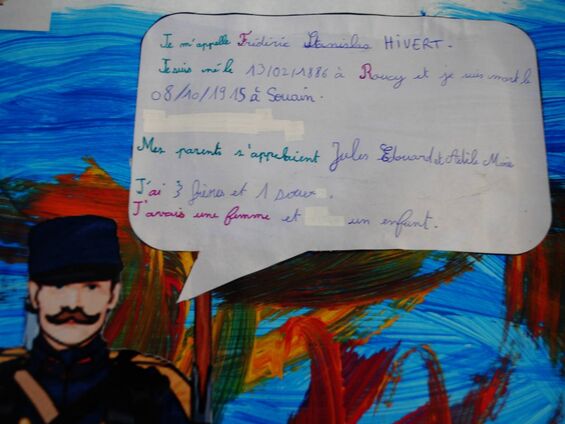 Je m'appelle Frédéric Stanislas HIVERT.
Je suis né le 13/02/1886 à Roucy et je suis mort le
08/10/1915 à Souain.
Mes parents s'appelaient Jules Edouard et Adèle Marie
J'ai 3 frères et 1 soeur.
J'avais une femme et un enfant.